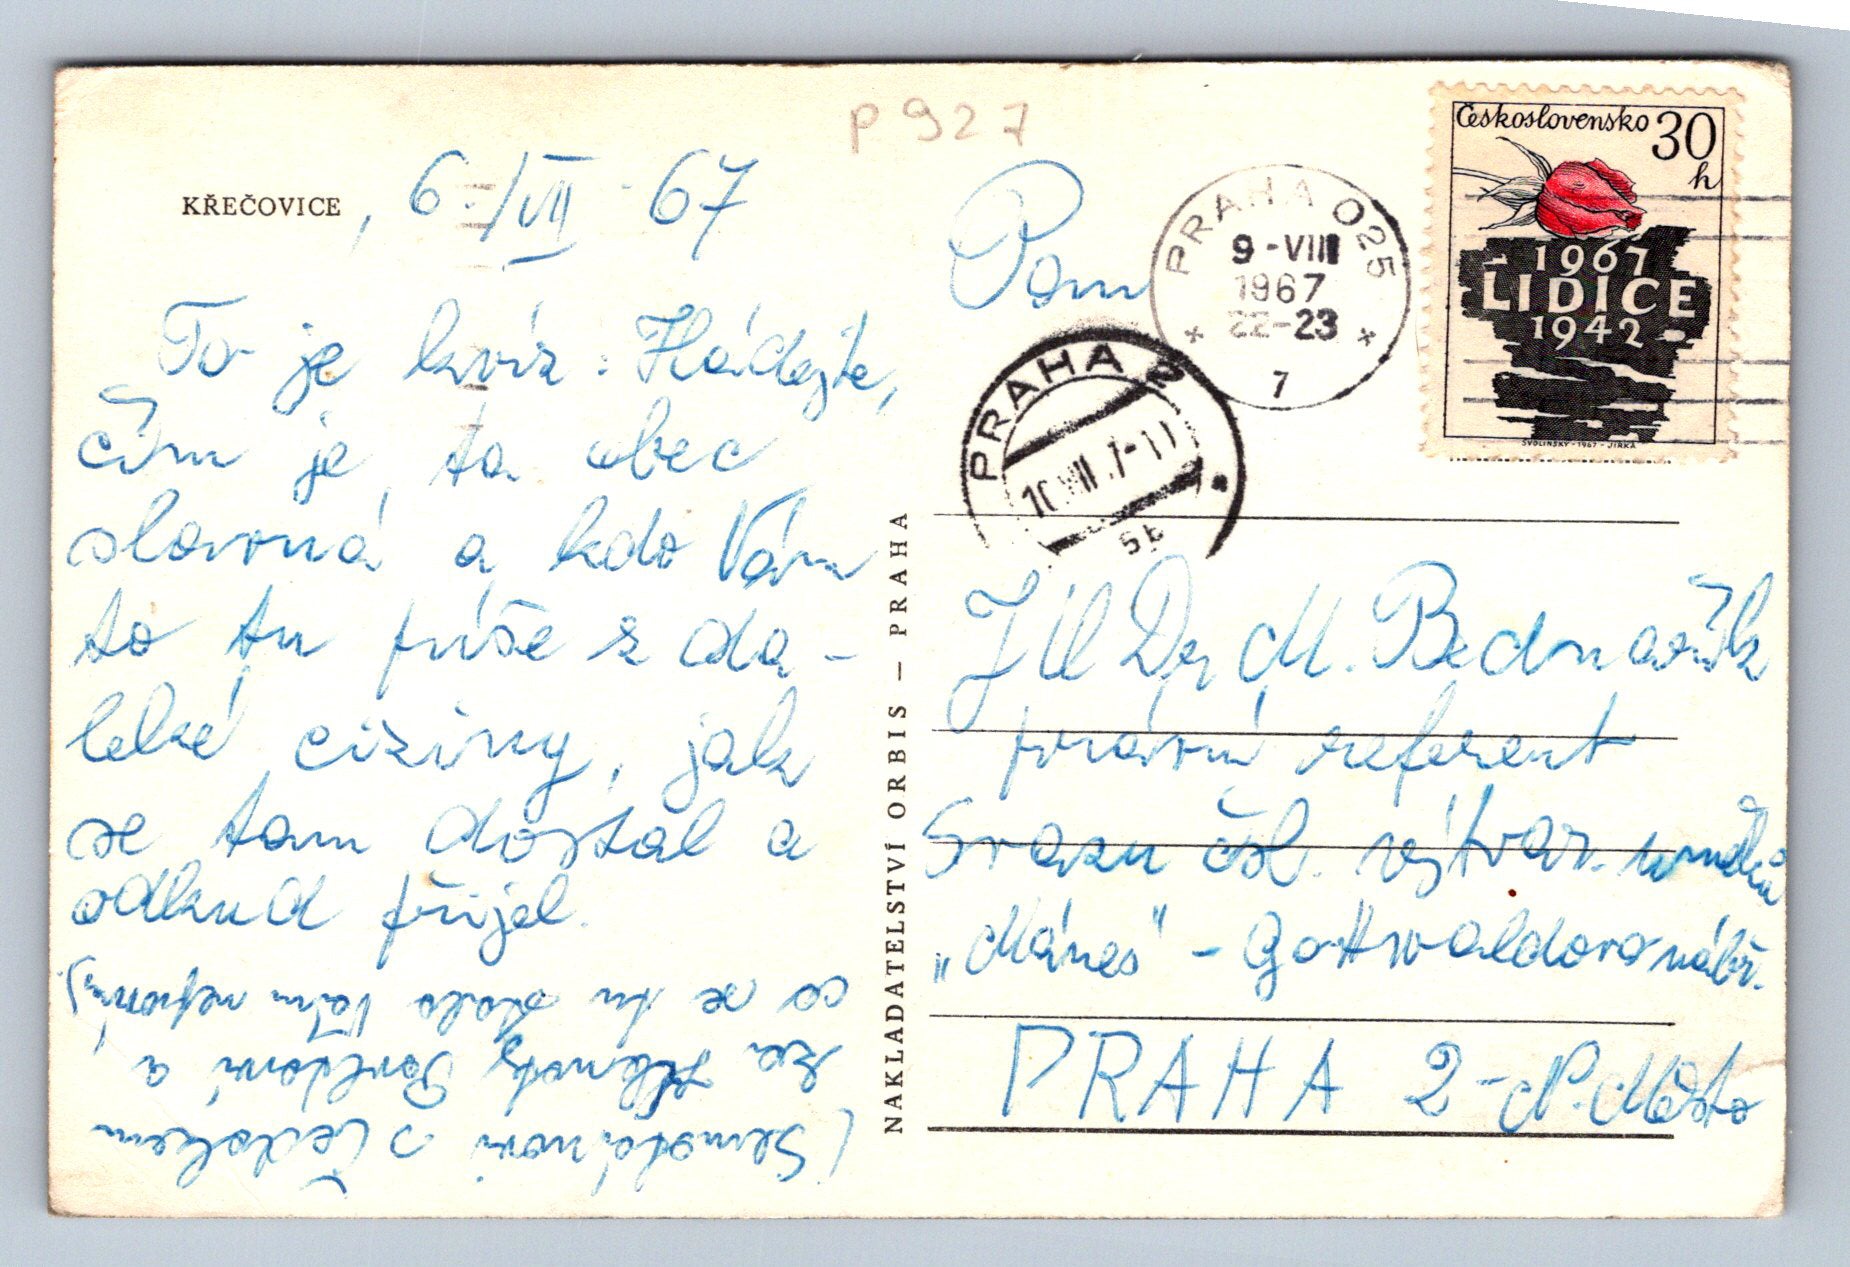 P 927
KŘEČOVICE, 6./VII 67
To je kvíz: Hádejte,
čím je ta obec
slavná a kdo Vám
to tu píše z da-
leké ciziny, jak
se tam dostal a
odkud přijel.
co se tu stalo Vám nepoví)
za a
s Čedokem
Pan
JUDr M. Bednařík
právní referent
Svazu čsl. výtvar. umělců
„Mánes" - Gottwaldovo nábř.
PRAHA 2 - N. Město
NAKLADATELSTVÍ ORBIS — PRAHA
PRAHA 025
9-VIII
1967
22-23
7
PRAHA 2
Československo 30
h
1967
LIDICE
1942
SVOLINSKÝ - 1967 - JIRKA